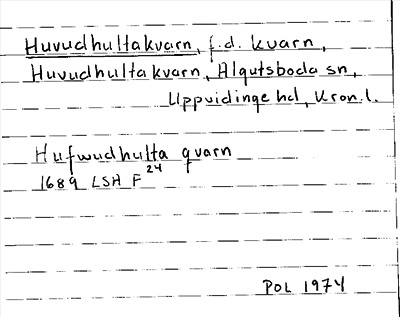 Huvudhultakvarn, f.d. kvarn,
Huvudhulta kvarn, Algutsboda sn,
Uppvidinge hd, Kron.l.
Hufwudhulta qvarn
1689 LSH F 24
POL 1974